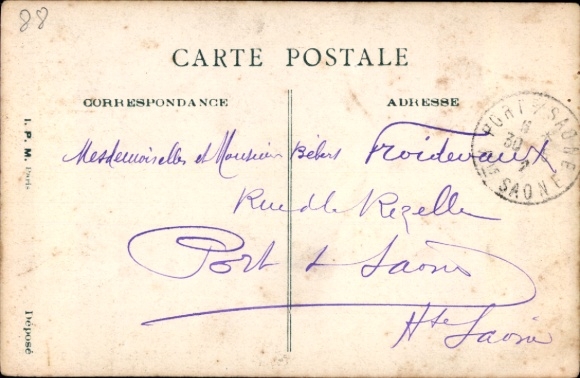 88
CARTE POSTALE
CORRESPONDANCE
ADRESSE
Mesdemoiselles et Monsieur Bébert Froidevaux
Rue de la Rezelle
Port s Saône
Hte Saône
PORT S/ SAONE
30
Hte SAONE
I. P. M. Paris
Déposé